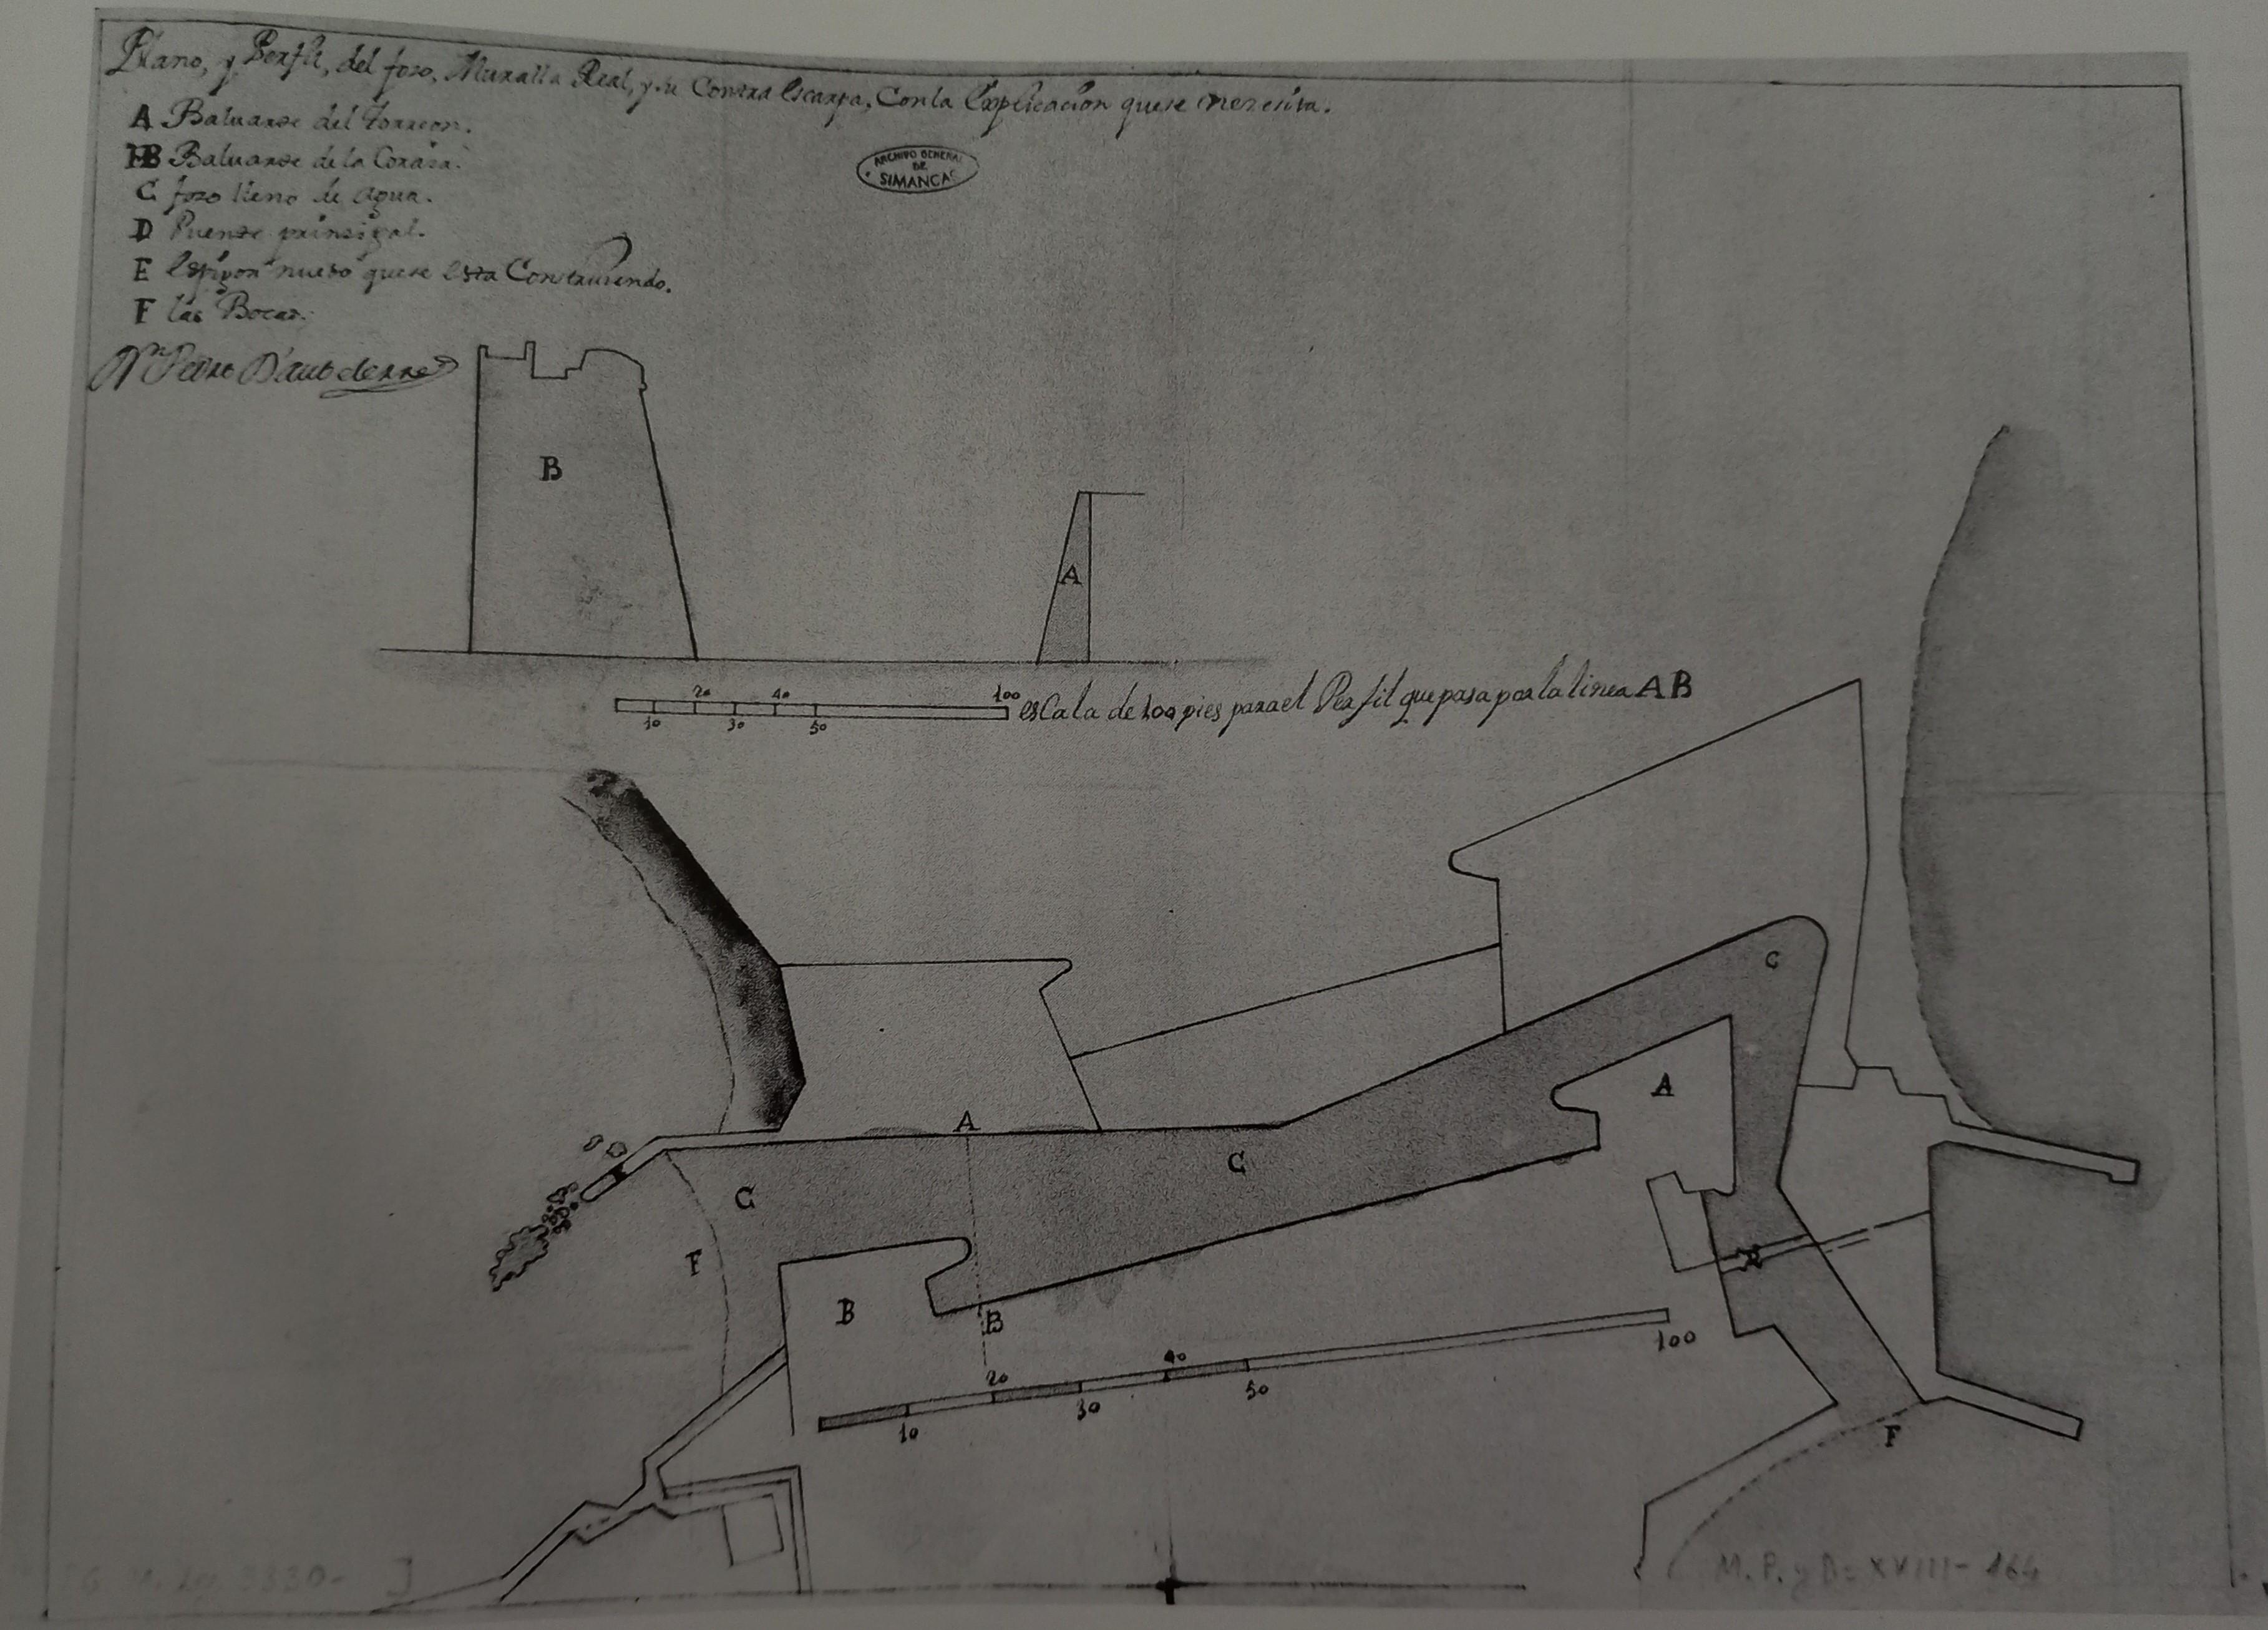 Plano, y Perfil, del foso, Muralla Real, y su Contra Escarpa, Con la Explicación que se nezesita.
A Baluarte del Torreon.
B Baluarte de la Coraza.
C foso lleno de agua.
D Puente prinsipal.
E Espigon nuebo que se Esta Construiendo.
F las Bocas.
ARCHIVO GENERAL
DE
SIMANCAS
Dn. Pedro D'aubeterre
B
A
20 40 100
10 30 50
esCala de 100 pies para el Perfil que pasa por la linea A B
C
A
A
C
C
F
B
B
100
40
20
50
30
10
F
M. P. y D= XVIII- 164